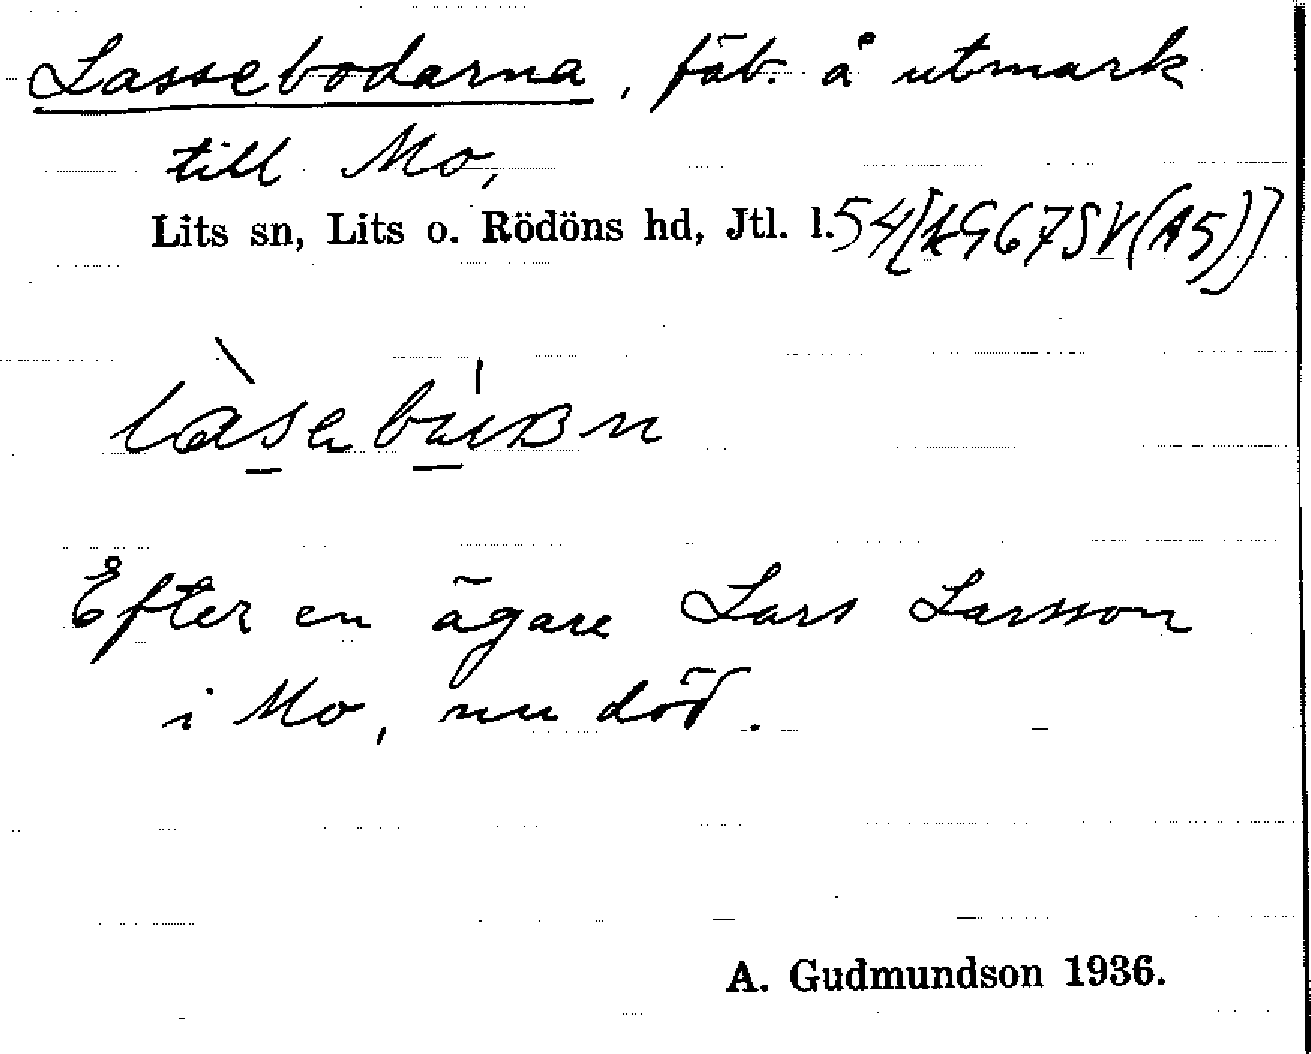 Lassebodarna, fäb. å utmark
till Mo,
Lits sn, Lits o. Rödöns hd, Jtl. l. 54[kG67SV(A5)]
Efter en ägare Lars Larsson
i Mo, nu död.
A. Gudmundson 1936.